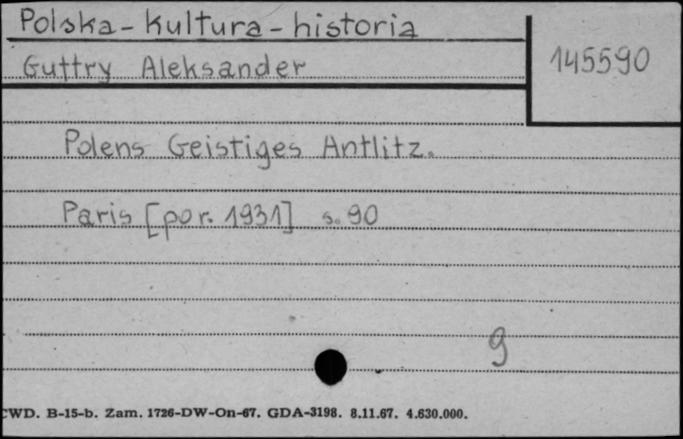 Polska - kultura - historia
Guttry Aleksander
145590
Polens Geistiges Antlitz.
Paris [por. 1931] s. 90
9
CWD. B-15-b. Zam. 1726-DW-On-67. GDA-3198. 8.11.67. 4.630.000.